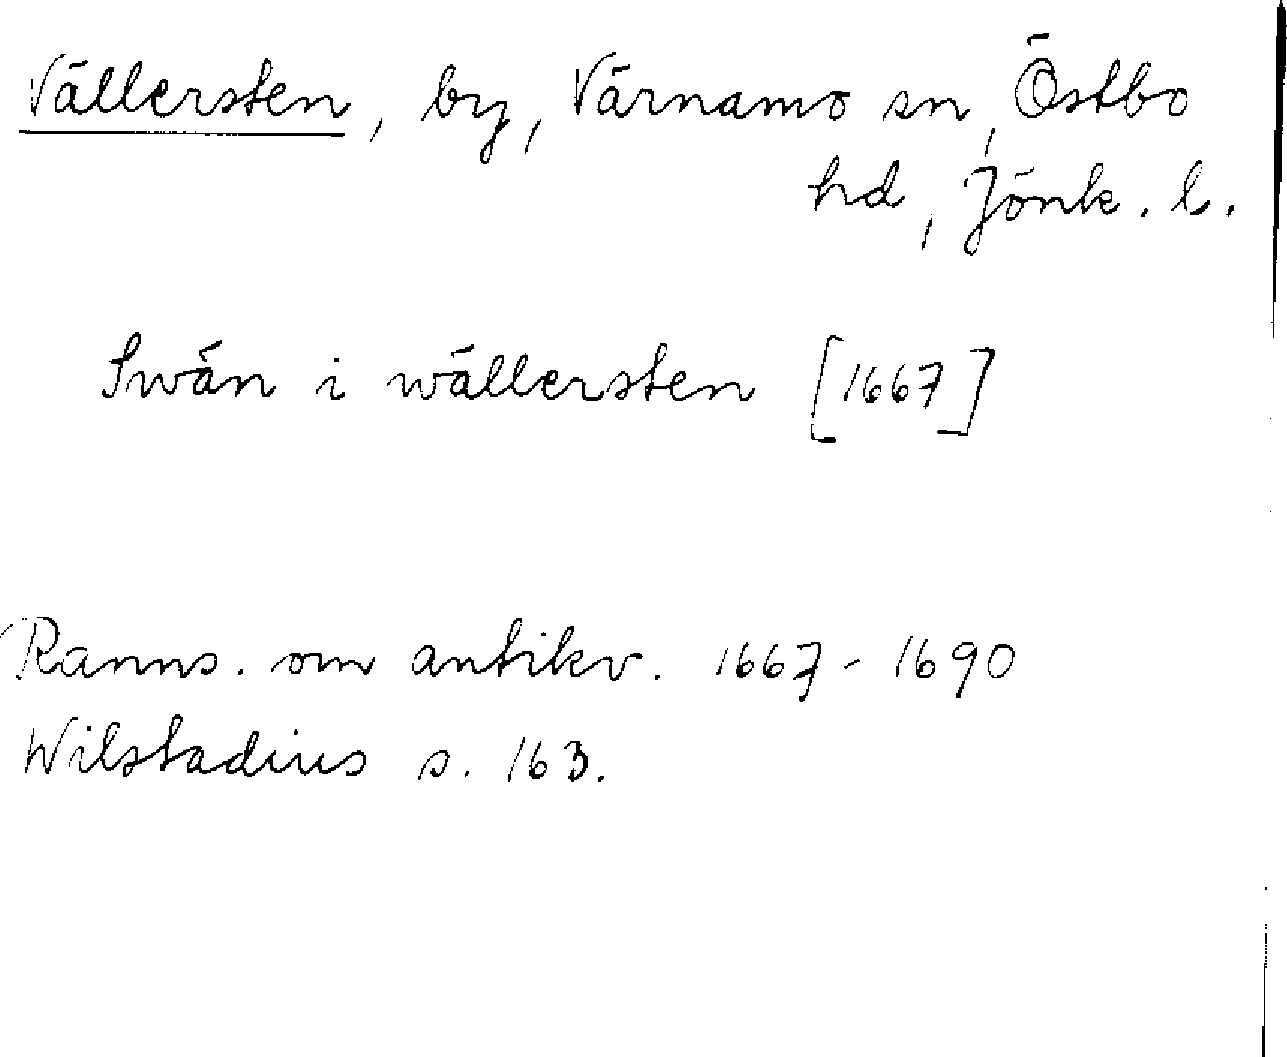 Vällersten, by, Värnamo sn, Östbo
hd, Jönk. l.
Swän i wällersten [1667]
Ranns. om antikv. 1667-1690
Wilstadius s. 163.